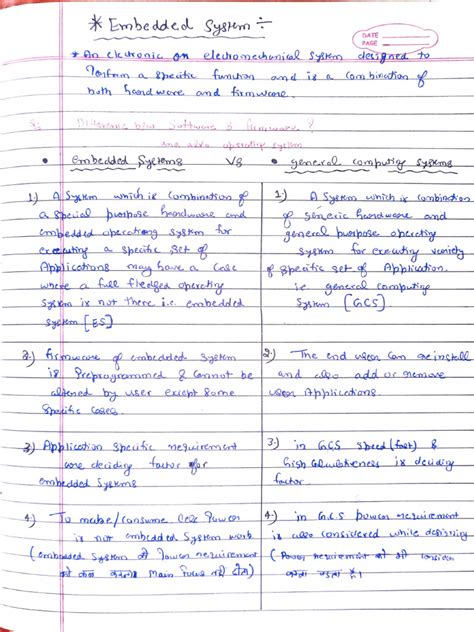 * Embedded System ÷
DATE
PAGE
* An electronic or electromechanical system designed to
Perform a specific function and is a combination of
both hardware and firmware.
Q: Difference b/w Software & firmware ?
and also operating system
• embedded Systems Vs • general computing systems
1.) A System which is Combination of
a special purpose hardware and
embedded operating system for
executing a specific set of
Applications may have a Case
where a full fledged operating
system is not there i.e. embedded
System [ES]
1.) A System which is combination
of generic hardware and
general purpose operating
system for executing variety
of specific set of Application.
i.e. general computing
System [GCS]
2.) firmware of embedded System
is Preprogrammed & Cannot be
altered by user except Some
Specific Cases.
2.) The end user Can reinstall
and also add or remove
user Applications.
3) Application specific requirement
are deciding factor for
embedded Systems
3.) in GCS Speed (fast) &
is deciding
factor.
4.) To make/consume less Power
is not embedded System work
(embedded System में Power requirement
को कम करना Main focus नहीं होता)
4.) in G.C.S power requirement
is also considered while designing
(Power requirement को भी consider
करना पड़ता है।